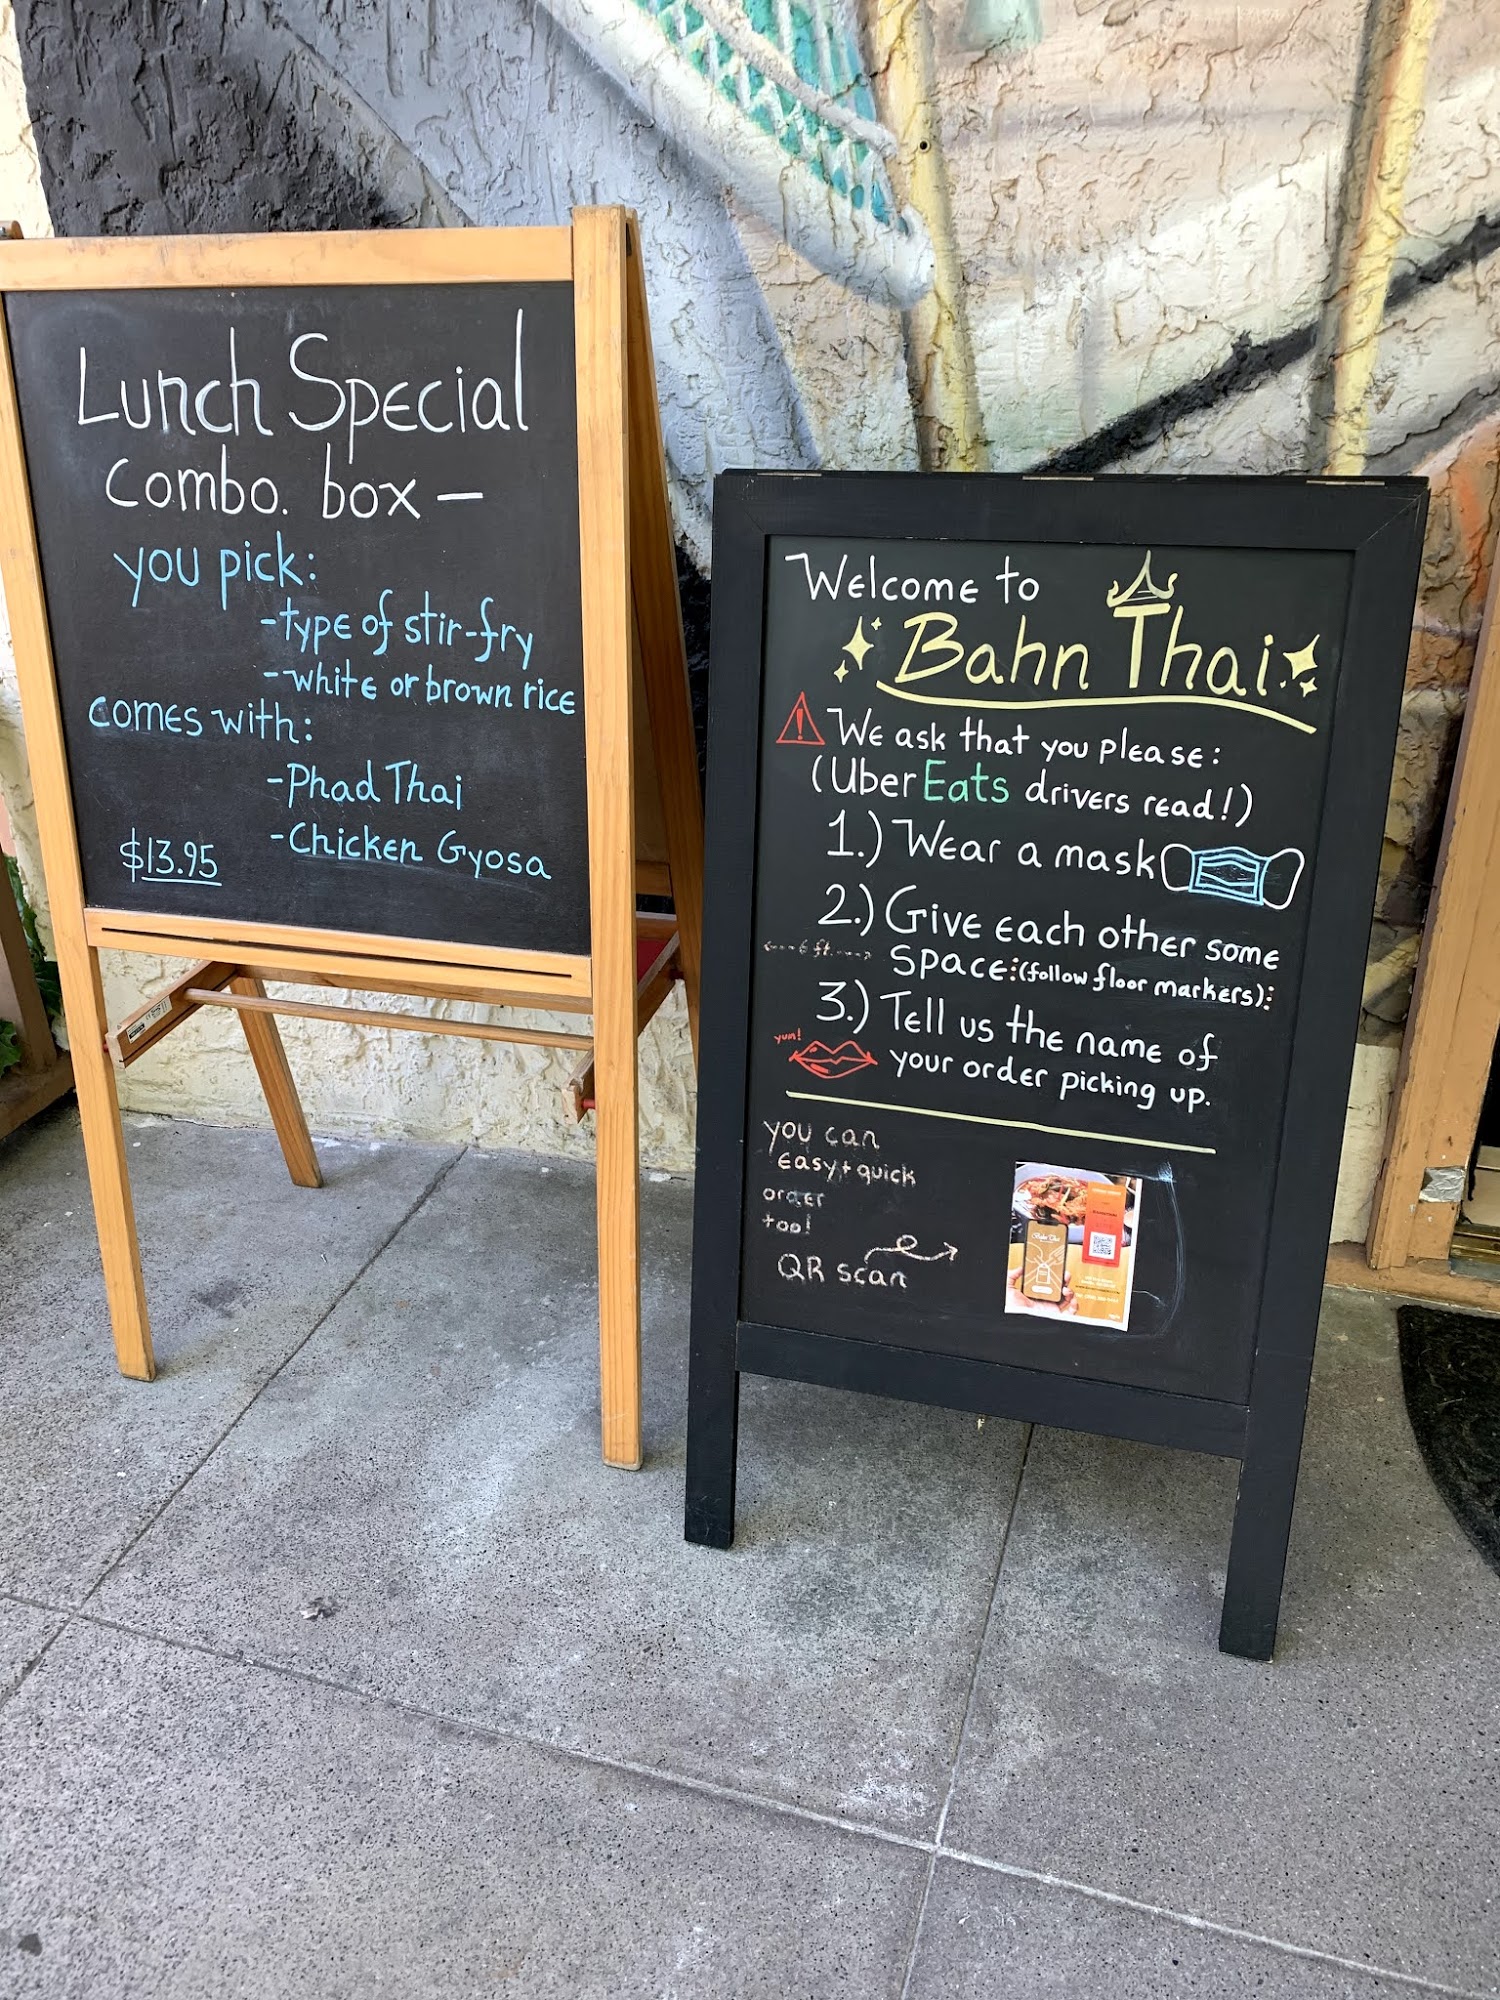 Lunch Special
combo. box –
you pick:
-type of stir-fry
-white or brown rice
comes with:
-Phad Thai
-Chicken Gyosa
$13.95
Welcome to
Bahn Thai
! We ask that you please:
(Uber Eats drivers read!)
1.) Wear a mask
2.) Give each other some
<---6 ft.--->
space:(follow floor markers):
3.) Tell us the name of
yum!
your order picking up.
you can
easy + quick
order
too!
QR scan
Bahn Thai